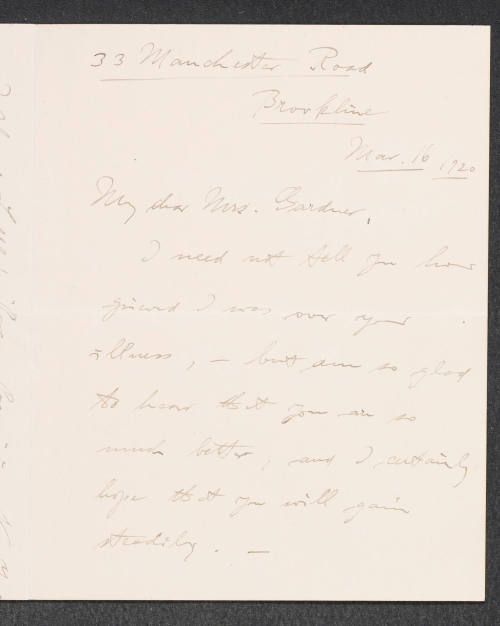 33 Manchester Road
Brookline
Mar. 16 1920
My dear Mrs. Gardner,
I need not tell you how
grieved I was over your
illness, – but am so glad
to hear that you are so
much better, and I certainly
hope that you will gain
steadily. –